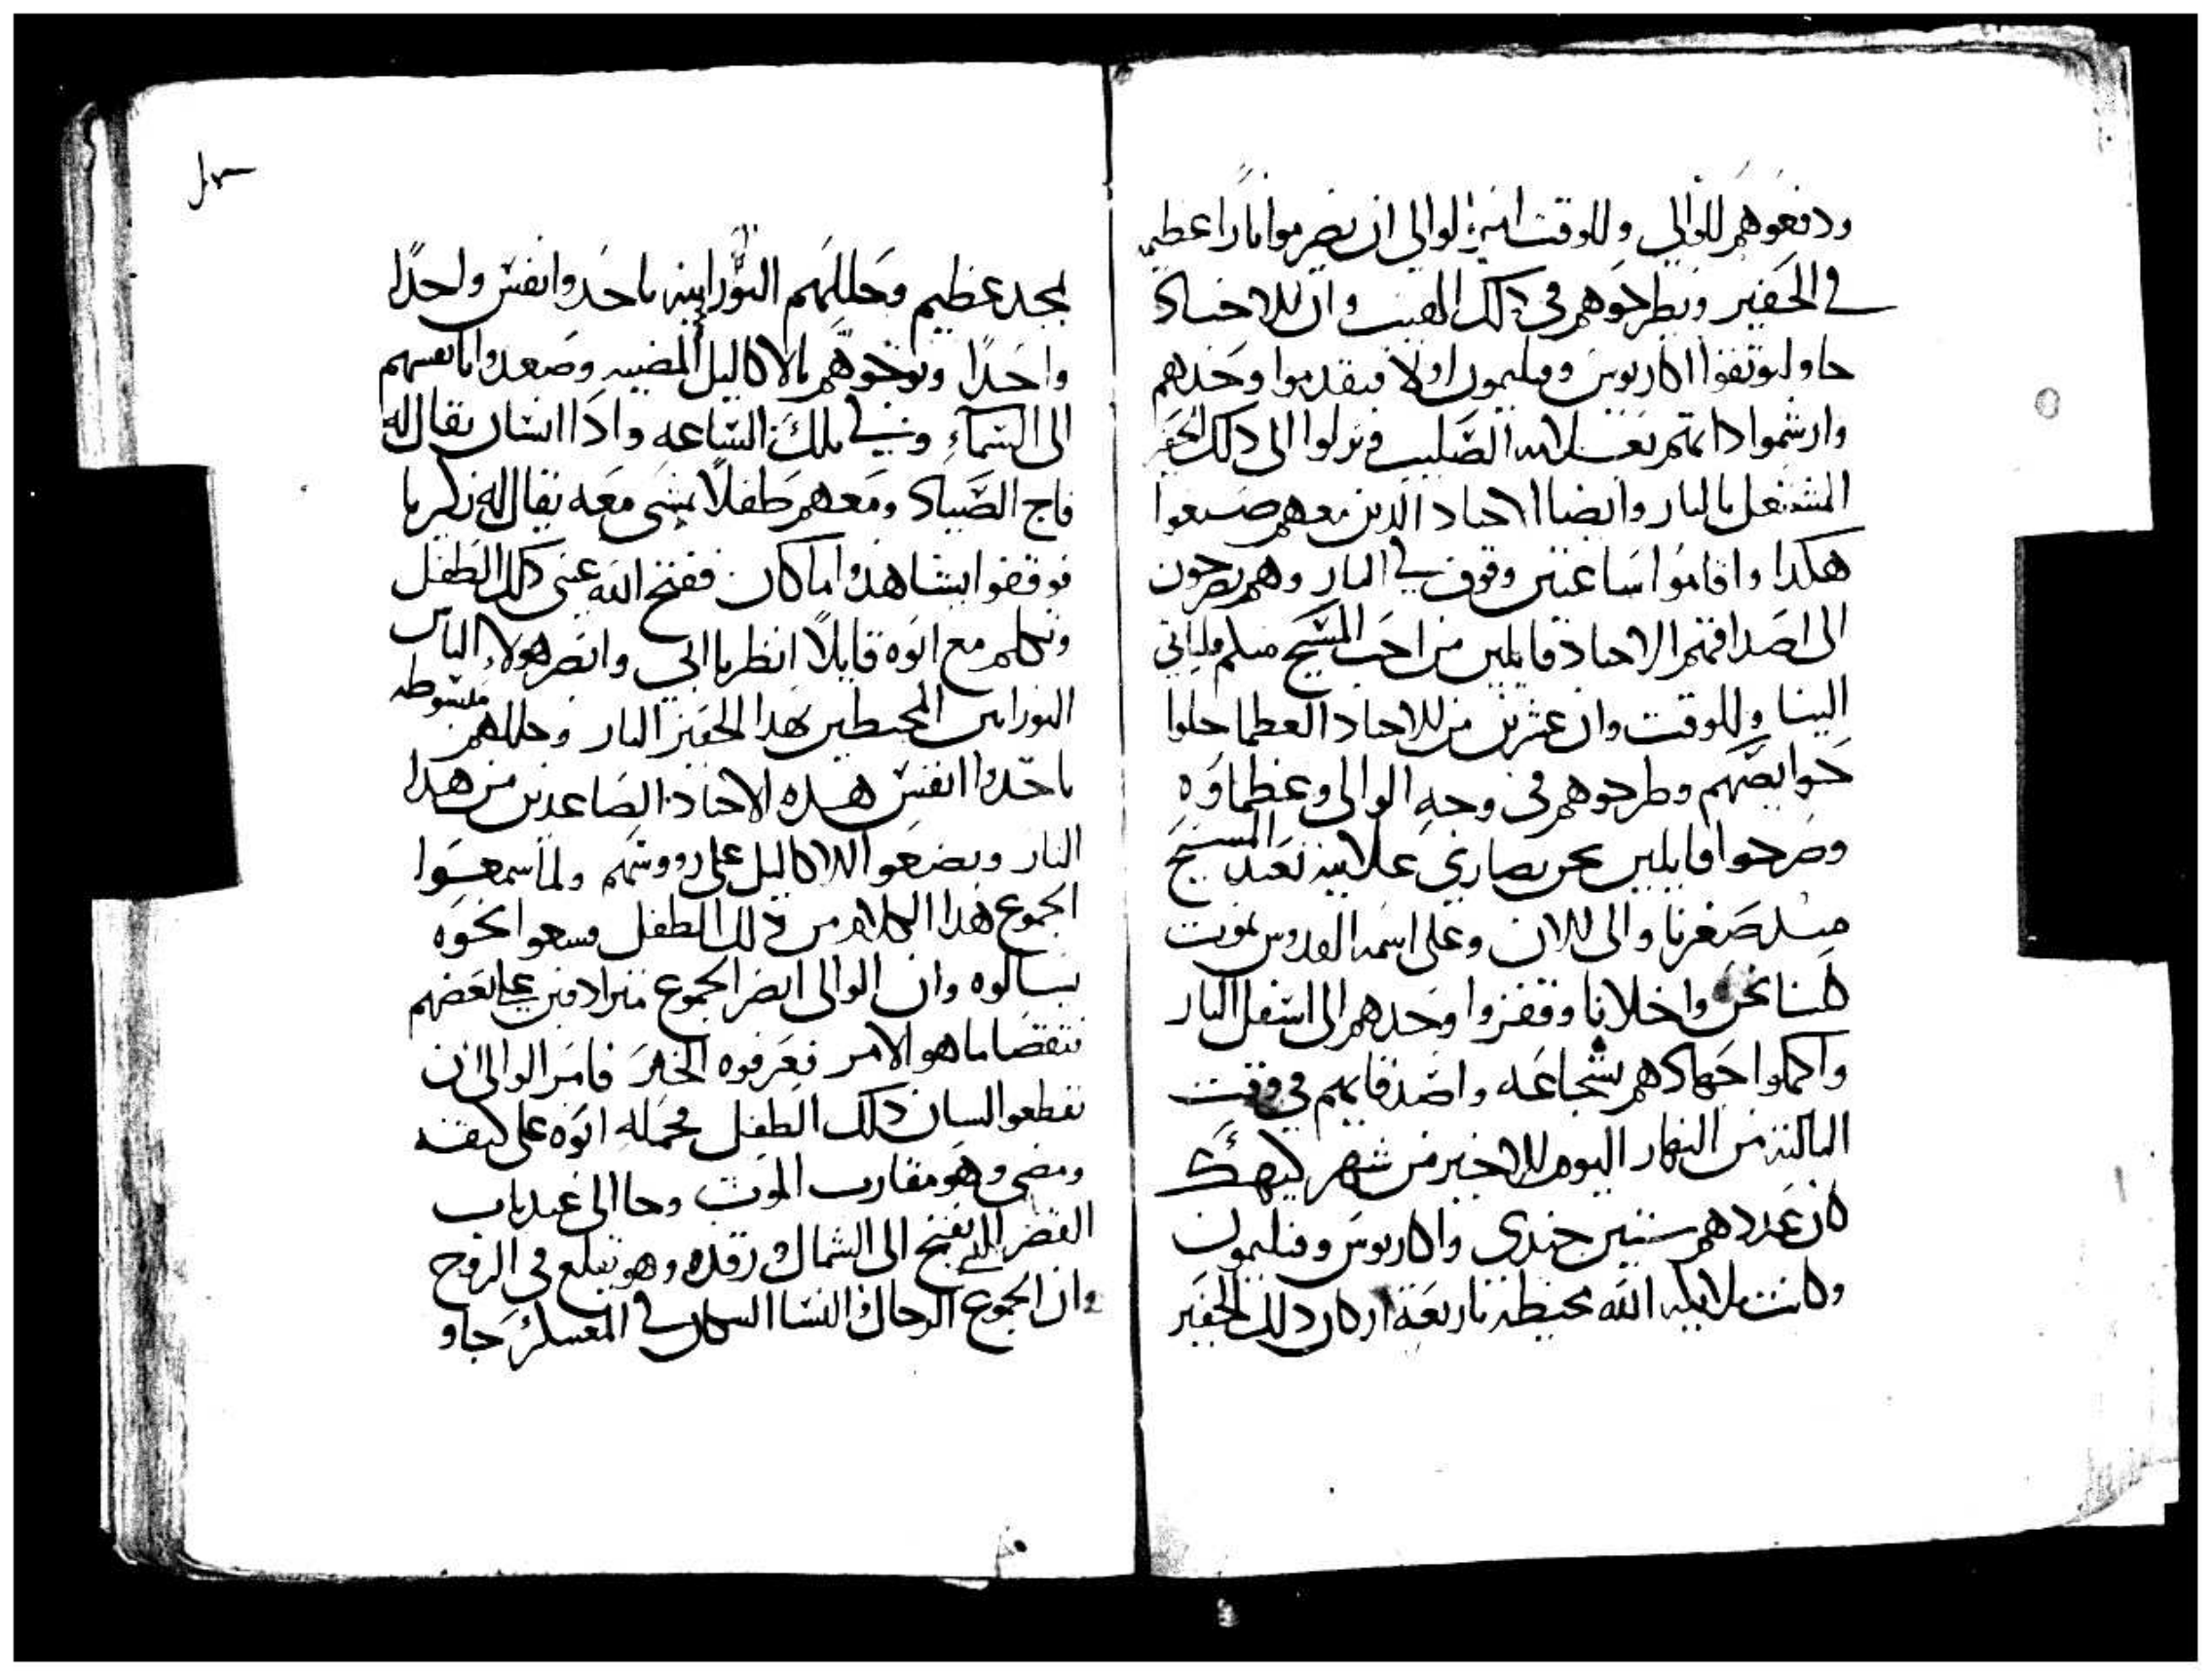 ودفعوهم للوالي وللوقت امر الوالي ان يضرموا نارا عظيمه
في الحفير ويطرحوهم في دلك اللهيب وان الاجناد
جاوا ليوثقوا اكاريوس وفليمون اولا فتقدموا وحدهم
وارشموا داتهم بعلامه الصليب ونزلوا الى دلك الحفير
المشتعل بالنار وايضا الاجناد الدين معهم صنعوا
هكدا واقاموا ساعتين وقوف في النار وهم يصرخون
الى اصدقائهم الاجناد قايلين من احب المسيح منكم فلياتي
الينا وللوقت وان عشرين من الاجناد العظما حلوا
حوايصهم وطرحوهم في وجه الوالي وعظماوه
وصرخوا قايلين نحن نصارى علانيه نعبد المسيح
منذ صغرنا والى الان وعلى اسمه القدوس نموت
هنا نحن واخلانا وقفزوا وحدهم الى اسفل النار
واكملوا جهادهم بشجاعه واصدقايهم في وقت
التالته من النهار اليوم الاخير من شهر كيهك
كان عددهم ستين جندى واكاريوس وفليمون
وكانت ملايكه الله محيطه باربعة اركان دلك الحفير
بمجد عظيم وحللهم النورانيه ياخدوا نفس واحدا
واحدا وتوجوهم بالاكاليل المضييه وصعدوا بانفسهم
الى السماء وفي تلك الساعه وادا انسان يقال له
تاج الصياد ومعهم طفلا يمشى معه يقال له زكريا
فوقفوا يشاهدوا ما كان ففتح الله عيني دلك الطفل
وتكلم مع ابوه قايلا انظر يا ابي وابصر هولاء الناس
النورانيين المحيطين بهدا الحفير النار وحللهم مبسوطه
ياخدوا انفس هده الاجناد الصاعدين من هدا
النار ويضعوا الاكاليل على رووسهم ولما سمعوا
الجموع هدا الكلام من دلك الطفل فسعوا نحوه
يسالوه وان الوالي ابصر الجموع مترادفين على بعضهم
فتقصا ما هو الامر فعرفوه الخبر فامر الوالي ان
يقطعوا لسان دلك الطفل فحمله ابوه على كتفه
ومضى وهو مقارب الموت وجا الى عند باب
القصر الذي يفتح الى الشمال ورقده وهو يبلع في الروح
وان الجموع الرجال والنسا السكان في المعسكر جاو